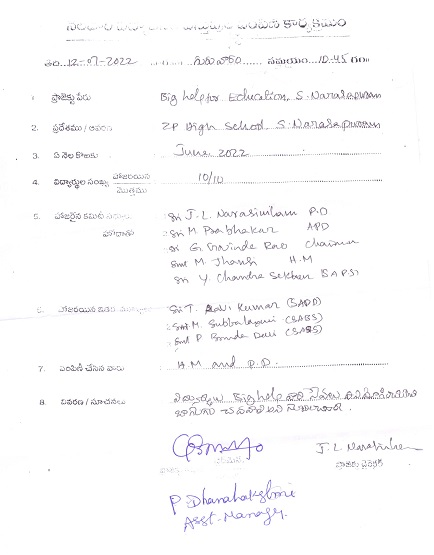 తేది. 12-07-2022 గురువారం సమయం: 10-45 గం॥
1. ప్రాజెక్టు పేరు Big help for Education, S. Narasapuram
2. ప్రదేశము / ZP High School, S. Narasapuram
3. ఏ నెల కొరకు June 2022
4. విద్యార్థుల సంఖ్య హాజరయిన / మొత్తము 10/10
5. హాజరైన కమిటీ Sri J. L. Narasimham P.O
Sri M. Prabhakar APD
Sri G. Govinda Rao Chairman
Smt M. Jhansi H.M
Sri Y. Chandra Sekhar SAPS)
6. హాజరయిన ఇతర Sri T. Ravi Kumar (SADD)
Smt M. Subbalaxmi (SABS)
Smt P. Devi (SABS)
7. పంపిణీ చేసిన వారు H M and P.D.
8. వివరణ / సూచనలు Big help వారి సేవలు
బాగుగా చదవాలని
J. L. Narasimham
P Dhanalakshmi
Asst. Manager.